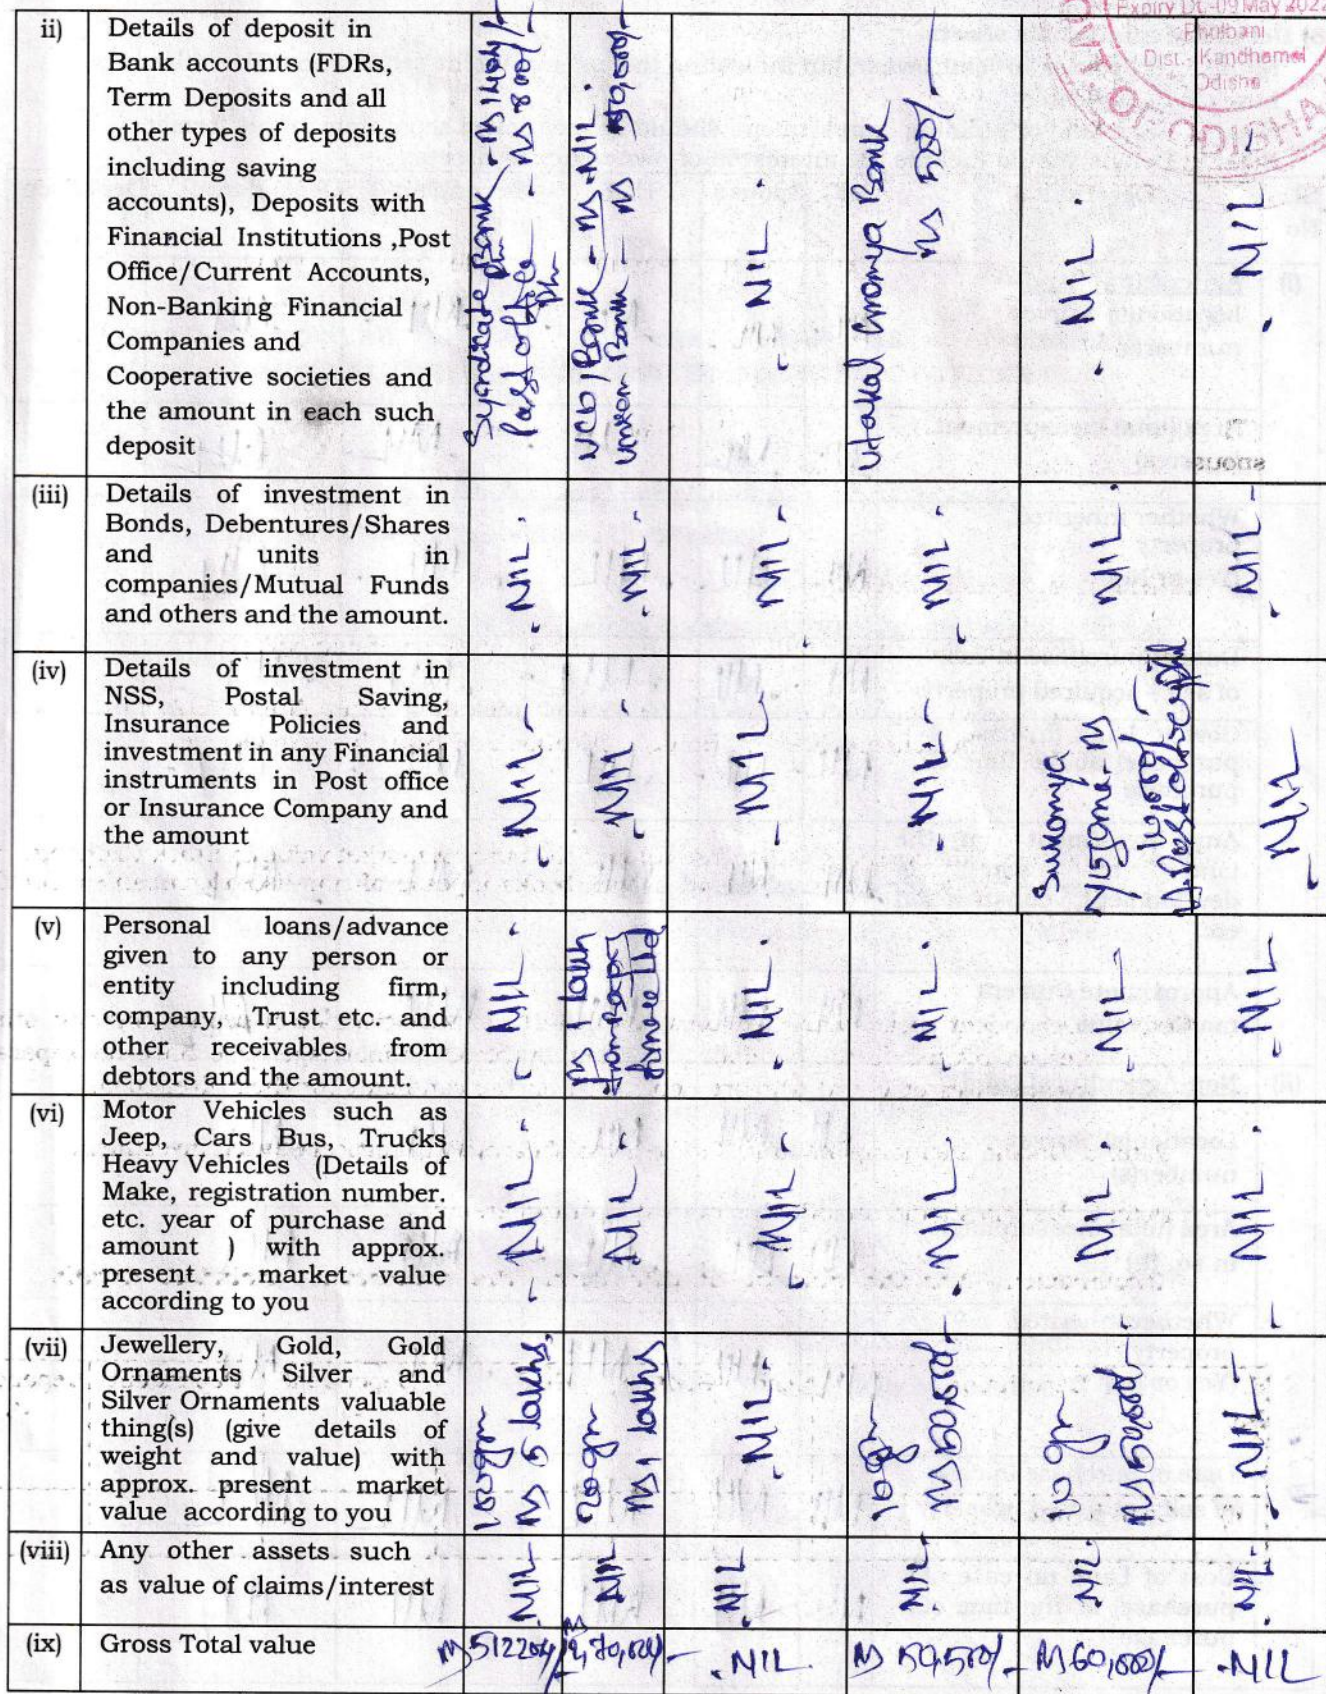 Expiry Dt.-09 May 2022
Phulbani
Dist.- Kandhamal
Odisha
OF ODISHA
ii)
Details of deposit in
Bank accounts (FDRs,
Term Deposits and all
other types of deposits
including saving
accounts), Deposits with
Financial Institutions ,Post
Office/Current Accounts,
Non-Banking Financial
Companies and
Cooperative societies and
the amount in each such
deposit
Syndicate Bank
Post office
UCO Bank - Rs. NIL.
Union Bank - Rs
- NIL.
Utakal Gramya Bank
Rs 500/-
. NIL.
. NIL -
(iii)
Details of investment in
Bonds, Debentures/Shares
and units in
companies/Mutual Funds
and others and the amount.
. NIL.
. NIL -
- NIL -
- NIL.
- NIL.
- NIL -
(iv)
Details of investment in
NSS, Postal Saving,
Insurance Policies and
investment in any Financial
instruments in Post office
or Insurance Company and
the amount
- NIL -
- NIL -
- NIL -
- NIL -
Sukanya
- NIL
(v)
Personal loans/advance
given to any person or
entity including firm,
company, Trust etc. and
other receivables from
debtors and the amount.
- NIL -
- NIL.
- NIL.
- NIL -
- NIL
(vi)
Motor Vehicles such as
Jeep, Cars Bus, Trucks
Heavy Vehicles (Details of
Make, registration number.
etc. year of purchase and
amount ) with approx.
present market value
according to you
- NIL -
- NIL -
- NIL -
. NIL -
- NIL.
- NIL.
(vii)
Jewellery, Gold, Gold
Ornaments Silver and
Silver Ornaments valuable
thing(s) (give details of
weight and value) with
approx. present market
value according to you
100gm
Rs 5 lakhs,
20gm
Rs 1 lakhs
. NIL -
10gm
Rs 50,000/-
10 gm
Rs 50,000/-
- NIL -
(viii)
Any other assets such
as value of claims/interest
. NIL -
NIL
. NIL
NIL.
. NIL.
. NIL.
(ix)
Gross Total value
. NIL
Rs 50,500/-
Rs 60,000/-
. NIL